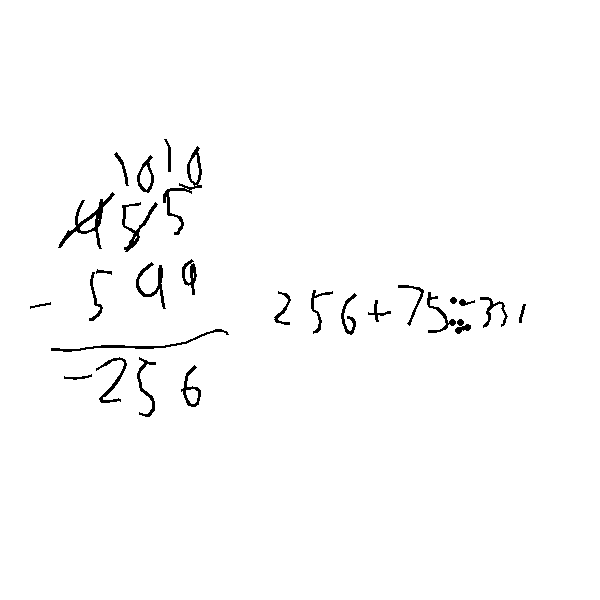 10 10
455
- 599
-256
256+75=331